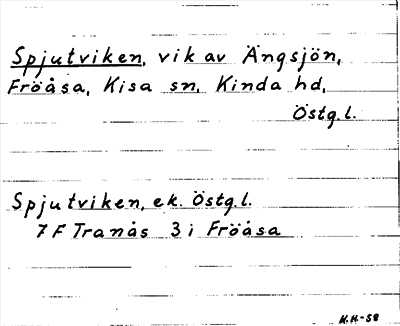 Spjutviken, vik av Ängsjön,
Fröåsa, Kisa sn, Kinda hd,
Östg.l.
Spjutviken, ek. Östg.l.
7 F Tranås 3 i Fröåsa
H.H-58